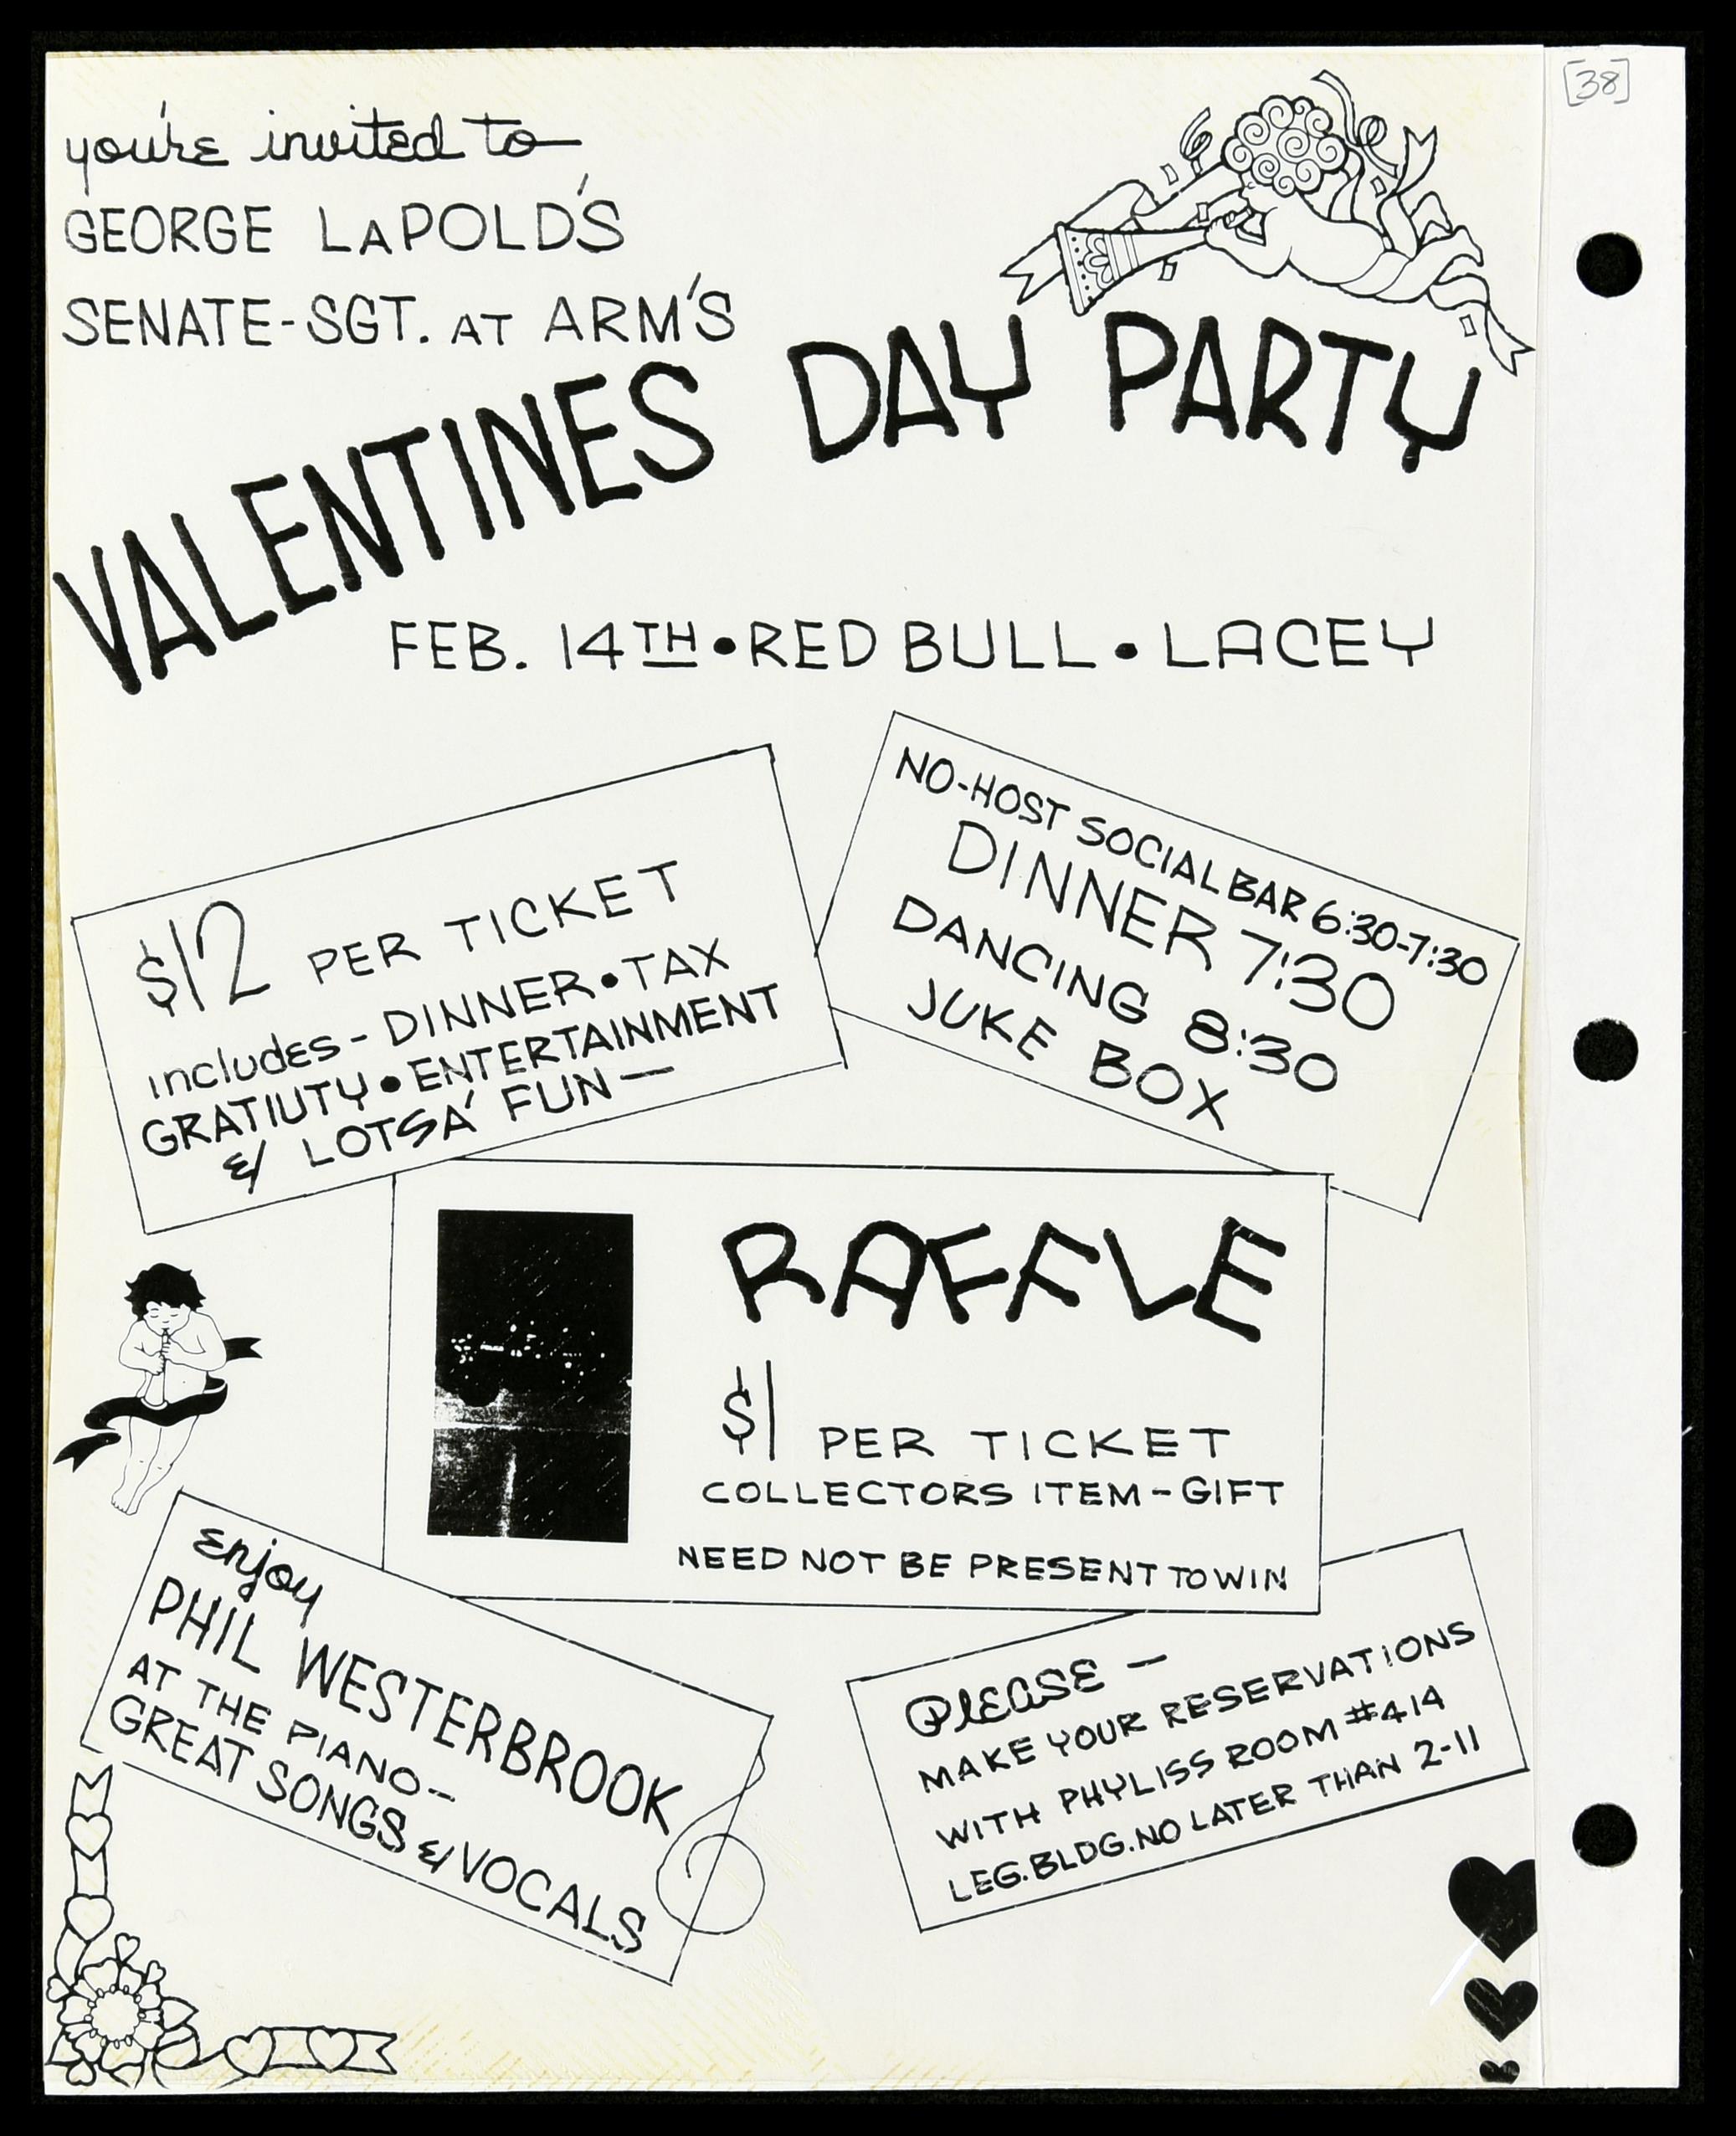 [38]
you're invited to
GEORGE LAPOLD'S
SENATE-SGT. AT ARM'S
VALENTINES DAY PARTY
FEB. 14TH • RED BULL • LACEY
$12 PER TICKET
includes - DINNER • TAX
GRATIUTY • ENTERTAINMENT
& LOTSA' FUN —
NO-HOST SOCIAL BAR 6:30-7:30
DINNER 7:30
DANCING 8:30
JUKE BOX
RAFFLE
$1 PER TICKET
COLLECTORS ITEM - GIFT
NEED NOT BE PRESENT TO WIN
Enjoy
PHIL WESTERBROOK
AT THE PIANO--
GREAT SONGS & VOCALS
PLEASE —
MAKE YOUR RESERVATIONS
WITH PHYLISS ROOM #414
LEG. BLDG. NO LATER THAN 2-11